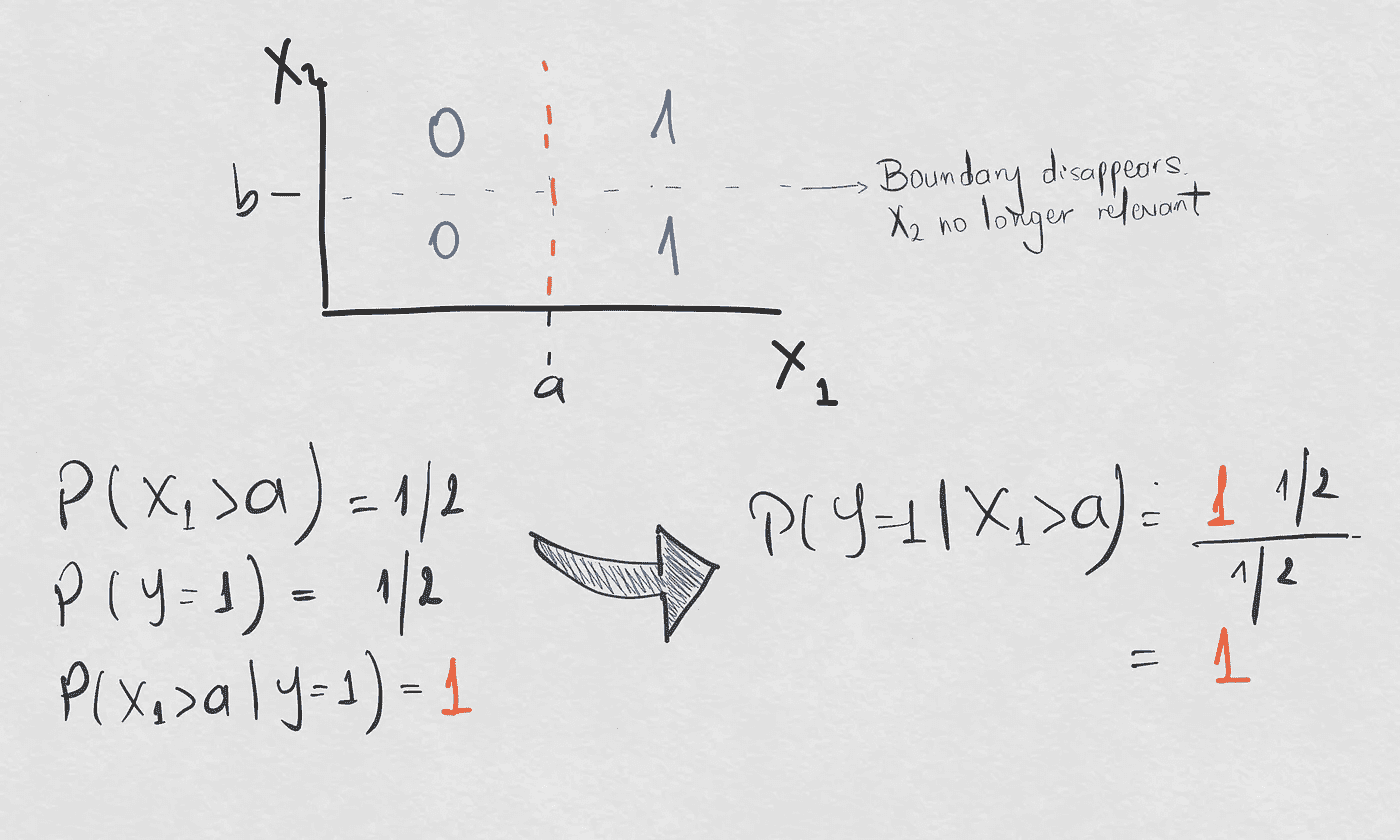 X₂
0 1
b
Boundary disappears.
X₂ no longer relevant
0 1
a
X₁
P(X₁>a) = 1/2
P(y=1) = 1/2
P(X₁>a|y=1) = 1
P(y=1|X₁>a) = 1 1/2
1/2
= 1